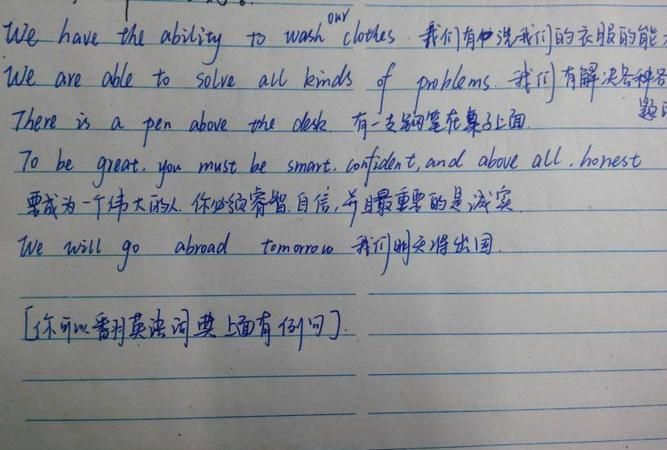 We have the ability to wash our clothes. 我们有洗我们的衣服的能
We are able to solve all kinds of problems. 我们有解决各种各
题
There is a pen above the desk 有一支钢笔在桌子上面
To be great, you must be smart, confident, and above all, honest
要成为一个伟大的人, 你必须睿智, 自信, 并且最重要的是诚实
We will go abroad tomorrow 我们明天将出国.
[你可以翻英语词典上面有例句].